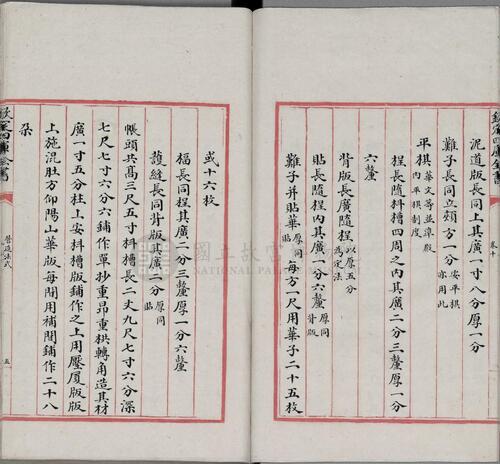 欽定四庫全書
卷十
泥道版長同上其廣一寸八分厚一分
難子長同立頰方一分安平棊亦用此
平棊華文等並準殿内平棊制度
桯長隨枓槽四周之内其廣二分三釐厚一分
六釐
背版長廣隨桯以厚五分為定法
貼長隨桯内其廣一分六釐厚同背版
難子并貼華厚同貼每方一尺用華子二十五枚
或十六枚
楅長同桯其廣二分三釐厚一分六釐
護縫長同背版其廣二分厚同貼
帳頭共高三尺五寸枓槽長二丈九尺七寸六分深
七尺七寸六分六鋪作單抄重昂重栱轉角造其材
廣一寸五分柱上安枓槽版鋪作之上用壓厦版版
上施混肚方仰陽山華版每間用補間鋪作二十八
朶
欽定四庫全書
營造法式
五
國立故宮
NATIONAL PALACE